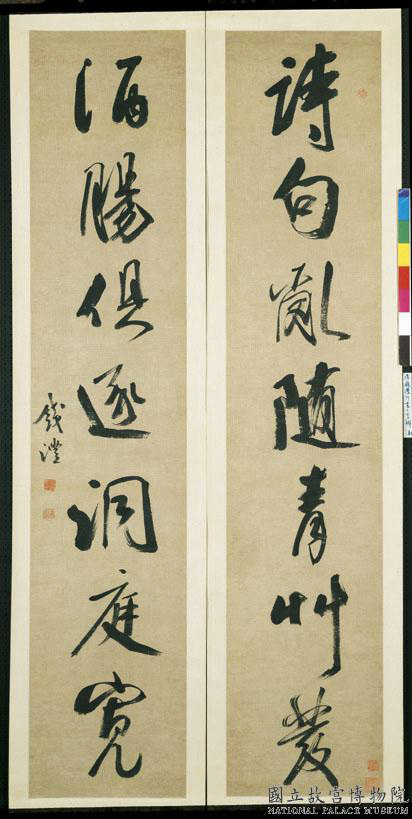 詩句亂随青艸發
酒腸俱逐洞庭寬
錢灃
國立故宮博物院
NATIONAL PALACE MUSEUM